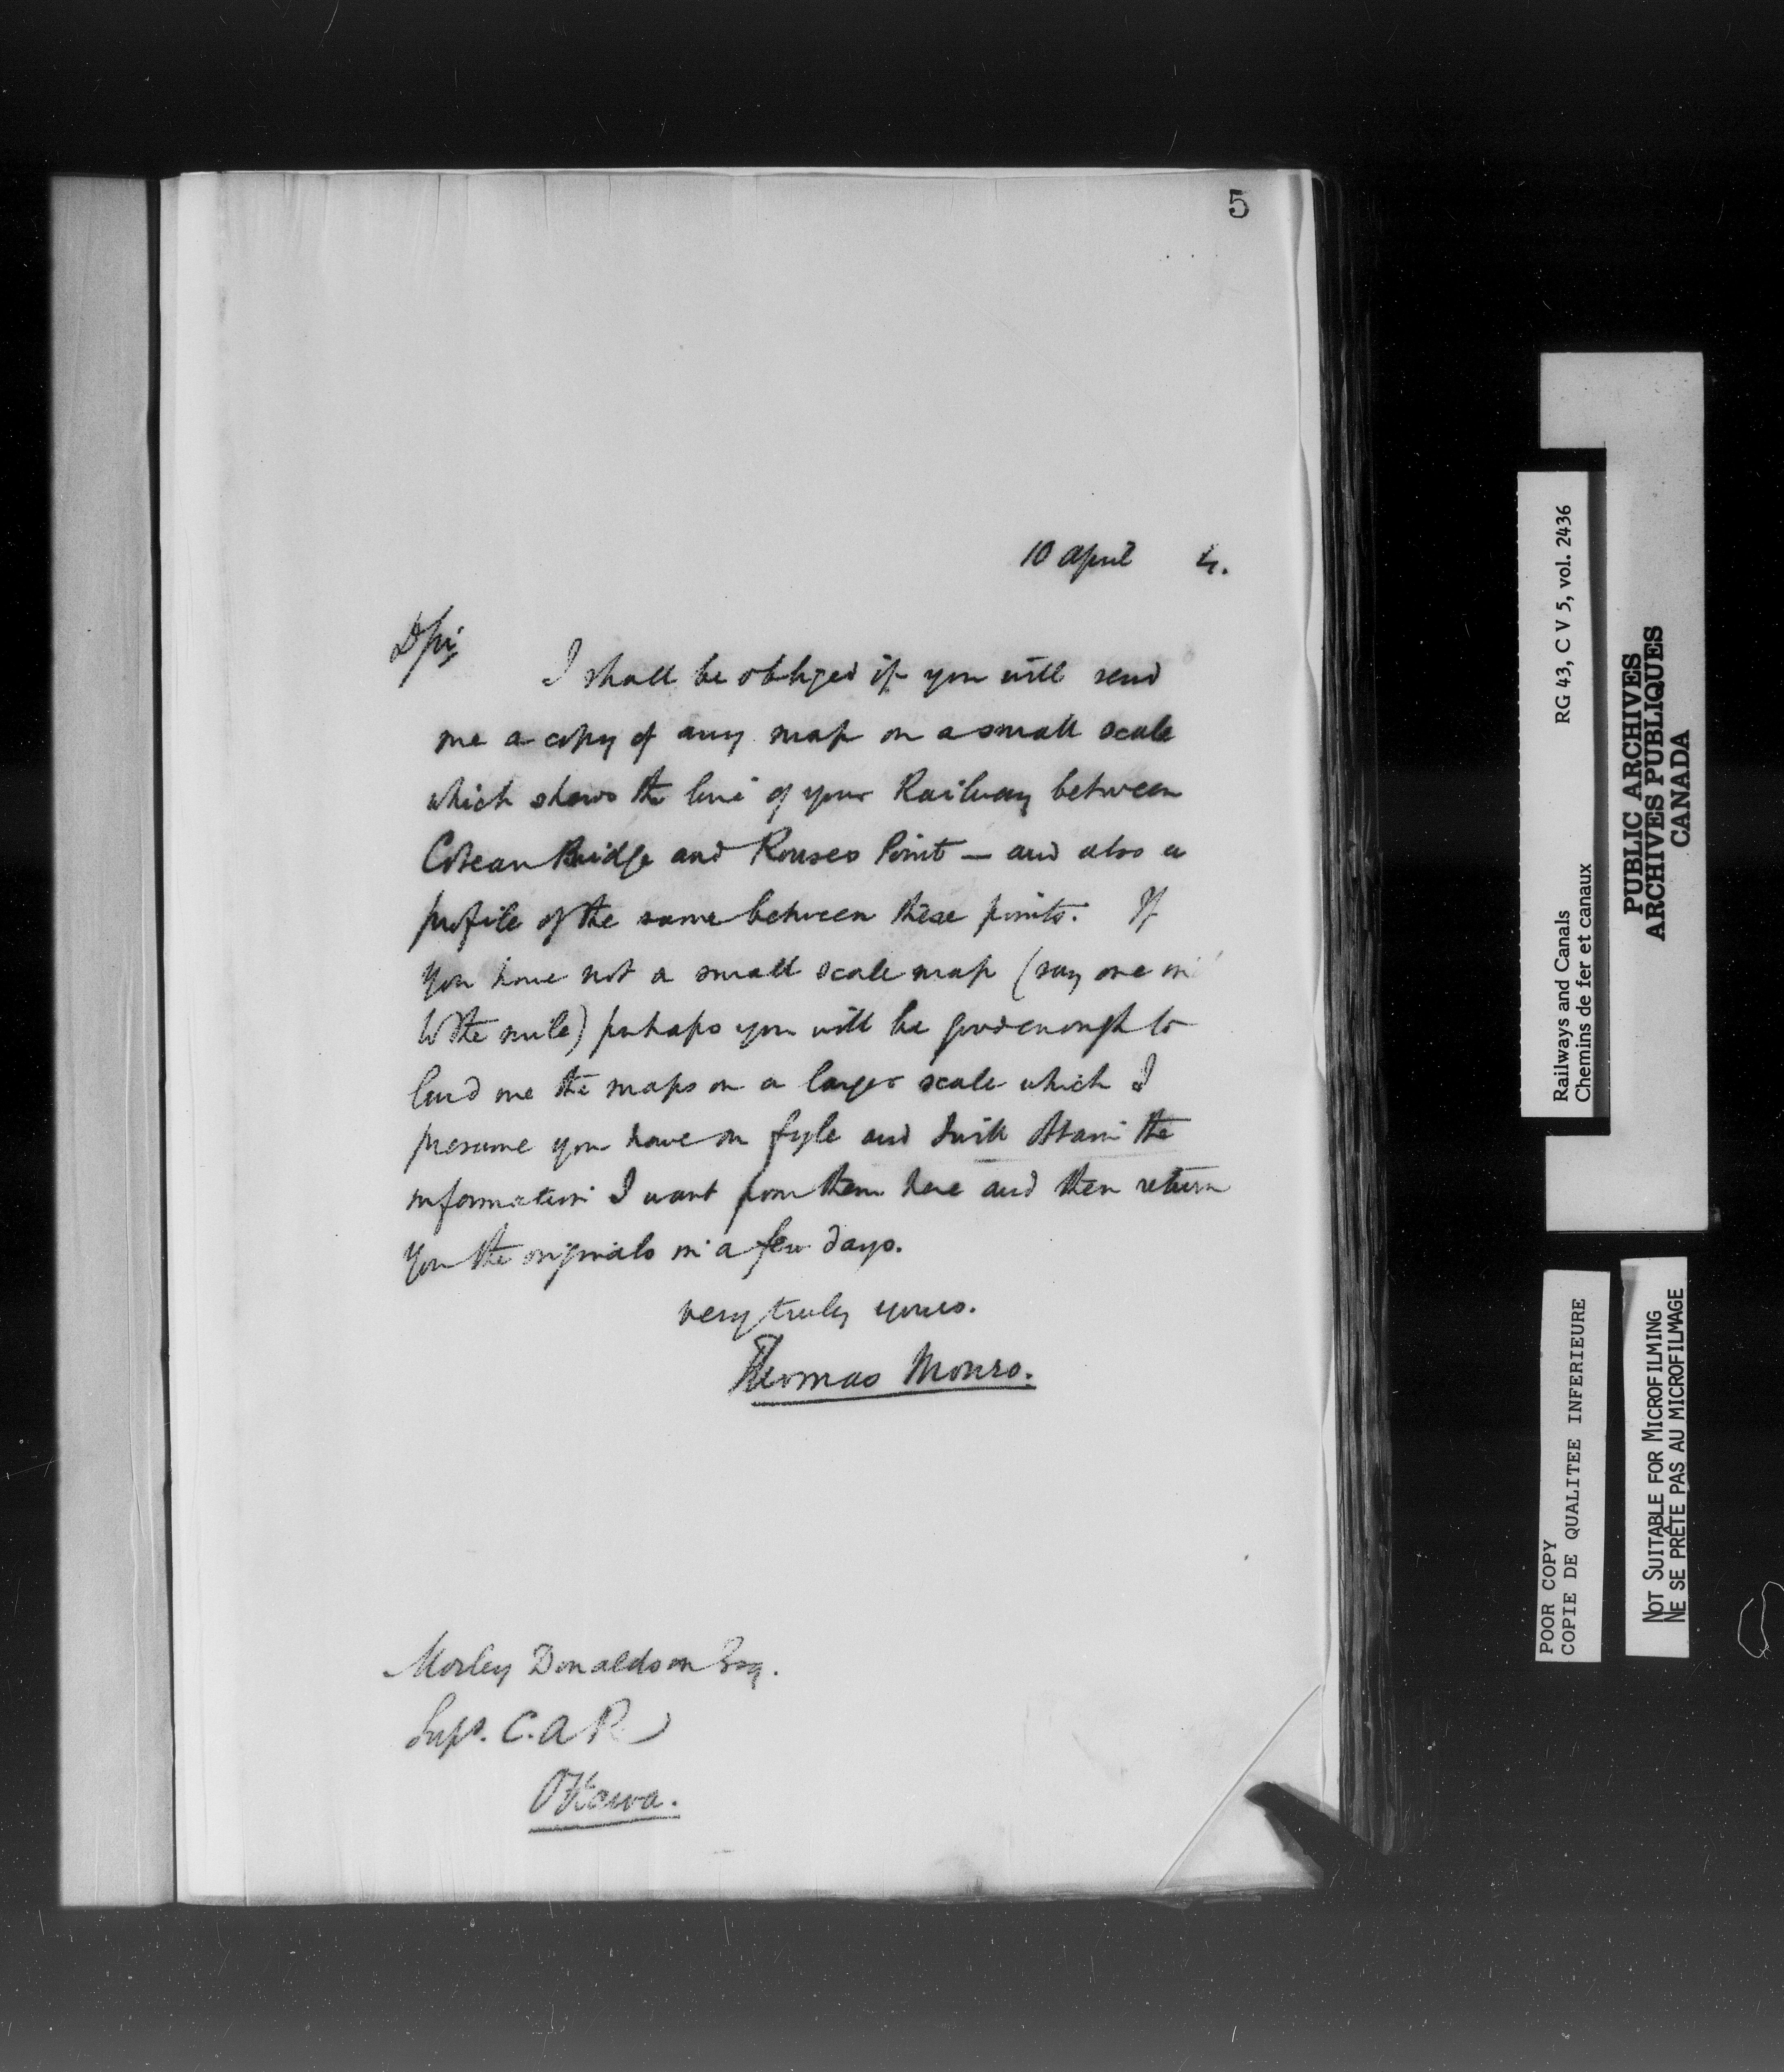 5
10 April 4.
D Sir,
I shall be obliged if you will send
me a copy of any map on a small scale
which shows the line of your Railway between
Coteau Bridge and Rouses Point — and also a
profile of the same between these points. If
you have not a small scale map (say one in
to the mile) perhaps you will be good enough to
lend me the maps on a larger scale which I
presume you have on fyle and I will obtain the
information I want from them here and then return
you the originals in a few days.
very truly yours.
Thomas Monro.
Morley Donaldson Esq.
Supt. C.A.R
Ottawa.
Railways and Canals RG 43, C V 5, vol. 2436
Chemins de fer et canaux
PUBLIC ARCHIVES
ARCHIVES PUBLIQUES
CANADA
POOR COPY
COPIE DE QUALITEE INFERIEURE
NOT SUITABLE FOR MICROFILMING
NE SE PRÊTE PAS AU MICROFILMAGE